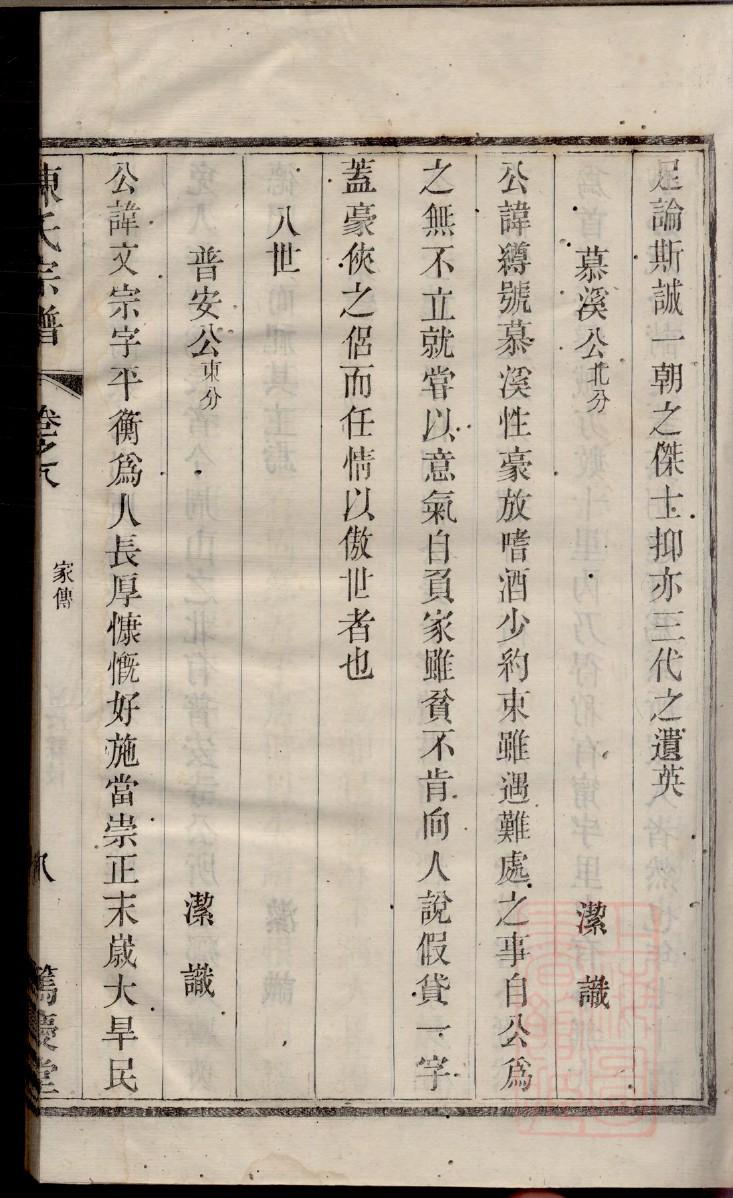 足論斯誠一朝之傑士抑亦三代之遺英
慕溪公北分　潔識
公諱縛號慕溪性豪放嗜酒少約束雖遇難處之事自公爲
之無不立就嘗以意氣自負家雖貧不肯向人說假貸一字
蓋豪俠之侶而任情以傲世者也
八世
普安公東分　潔識
公諱文宗字平衡爲人長厚慷慨好施當崇正末歲大旱民
陳氏宗譜　卷之八　家傳　八　篤慶堂